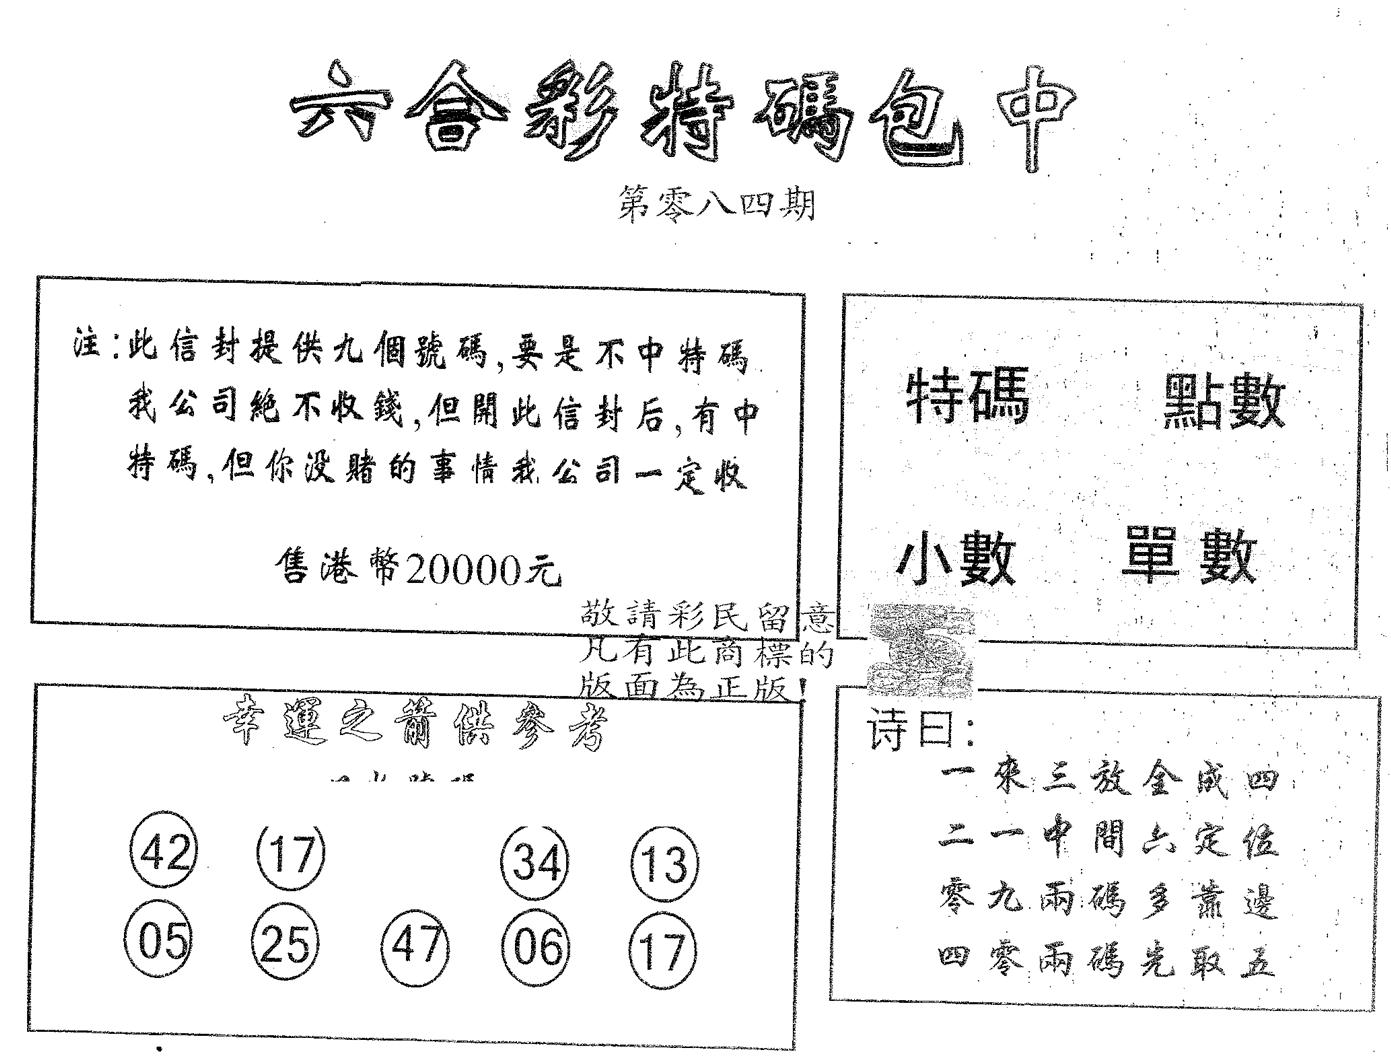 六合彩特碼包中
第零八四期
注:此信封提供九個號碼,要是不中特碼
我公司絕不收錢,但開此信封后,有中
特碼,但你没賭的事情我公司一定收
售港幣20000元
特碼 點數
小數 單數
敬請彩民留意
凡有此商標的
版面為正版!
幸運之箭供參考
42 17 34 13
05 25 47 06 17
诗曰:
一來三放全成四
二一中間六定位
零九兩碼多靠邊
四零兩碼先取五